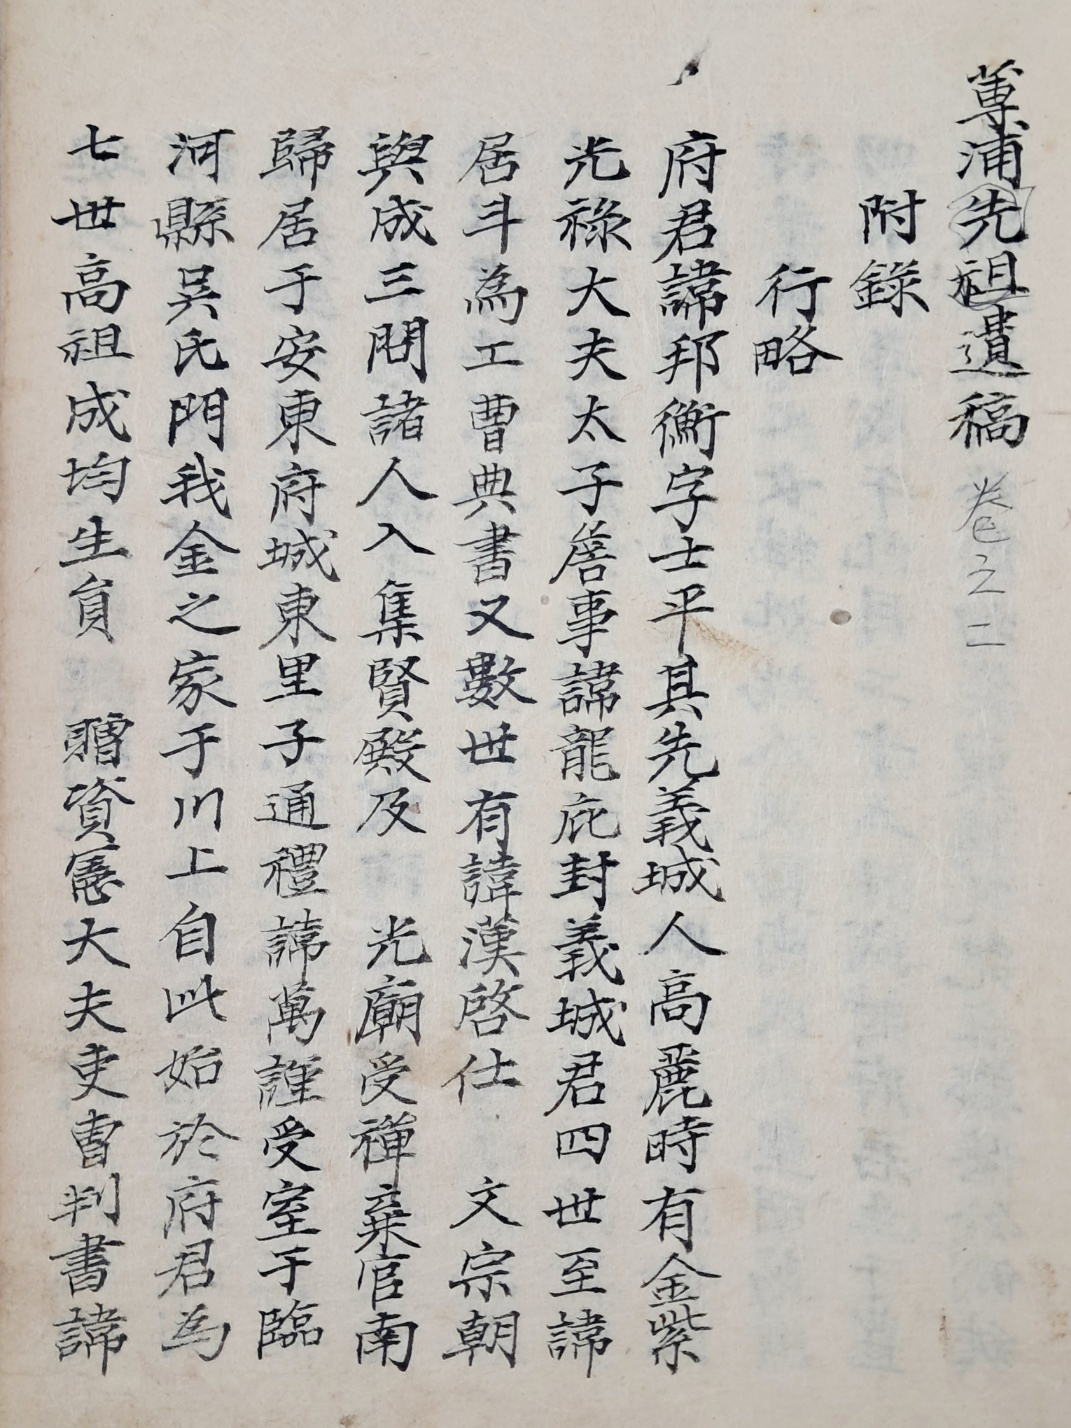 蓴浦先祖遺稿 卷之二
附錄
行略
府君諱邦衡字士平其先義城人高麗時有金紫
光祿大夫太子詹事諱龍庇封義城君四世至諱
居斗為工曹典書又數世有諱漢啓仕 文宗朝
與成三問諸人入集賢殿及 光廟受禪棄官南
歸居于安東府城東里子通禮諱萬謹受室于臨
河縣吳氏門我金之家于川上自此始於府君為
七世高祖成均生員 贈資憲大夫吏曹判書諱